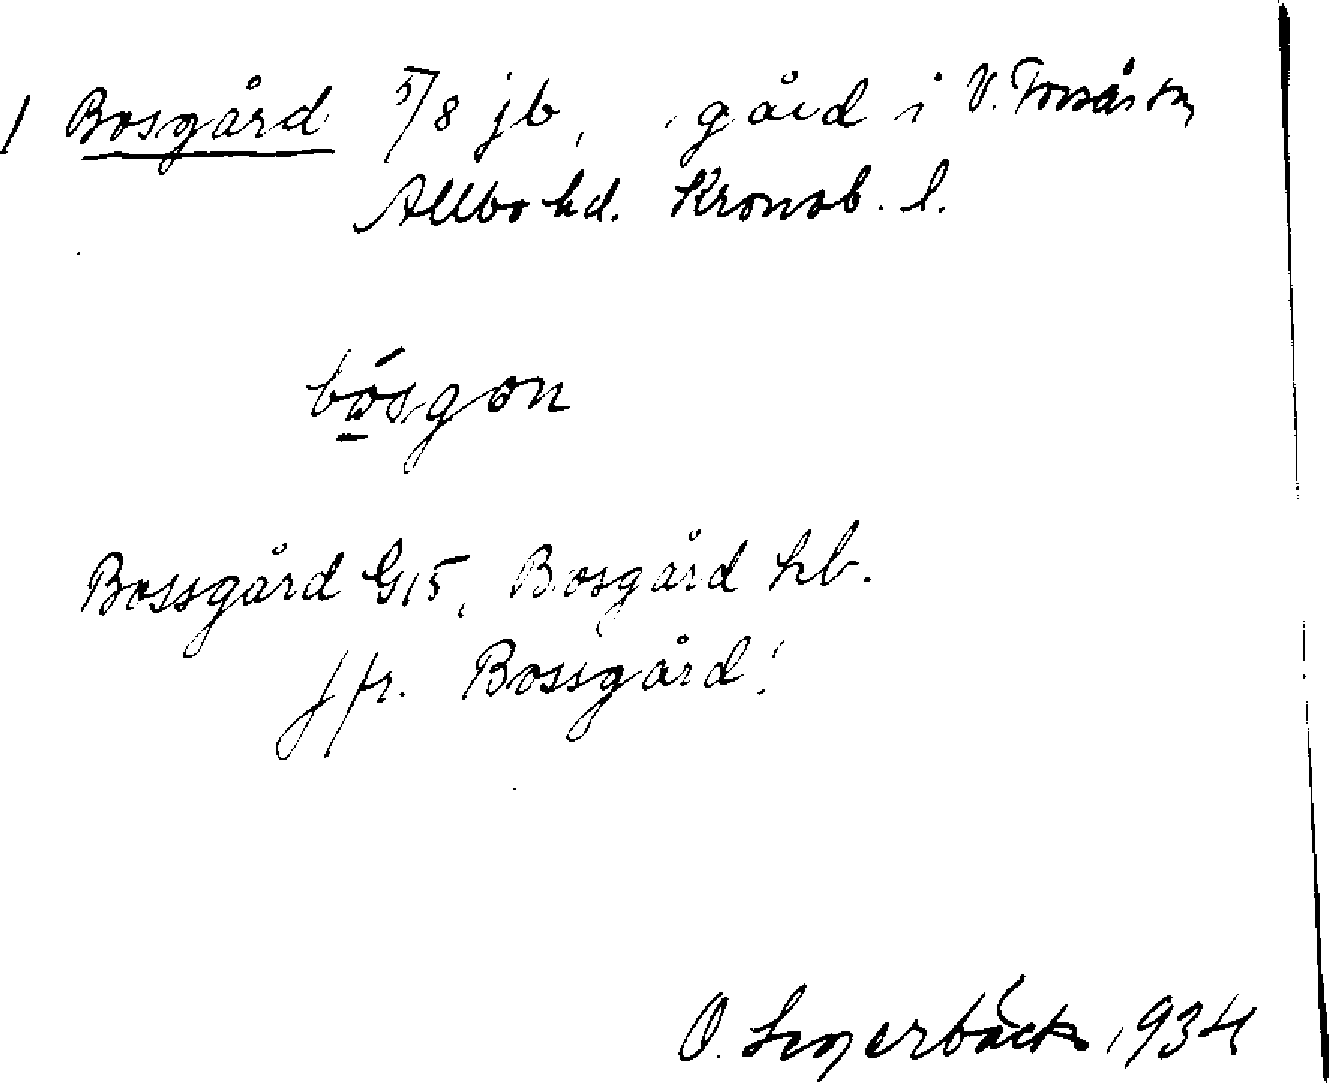 1 Bosgård 5/8 jb, gård i V. Torsås sn,
Allbo hd. Kronob. l.
bó̱sgon
Bossgård G15, Bosgård hb.
jfr. Bossgård!
O. 1934